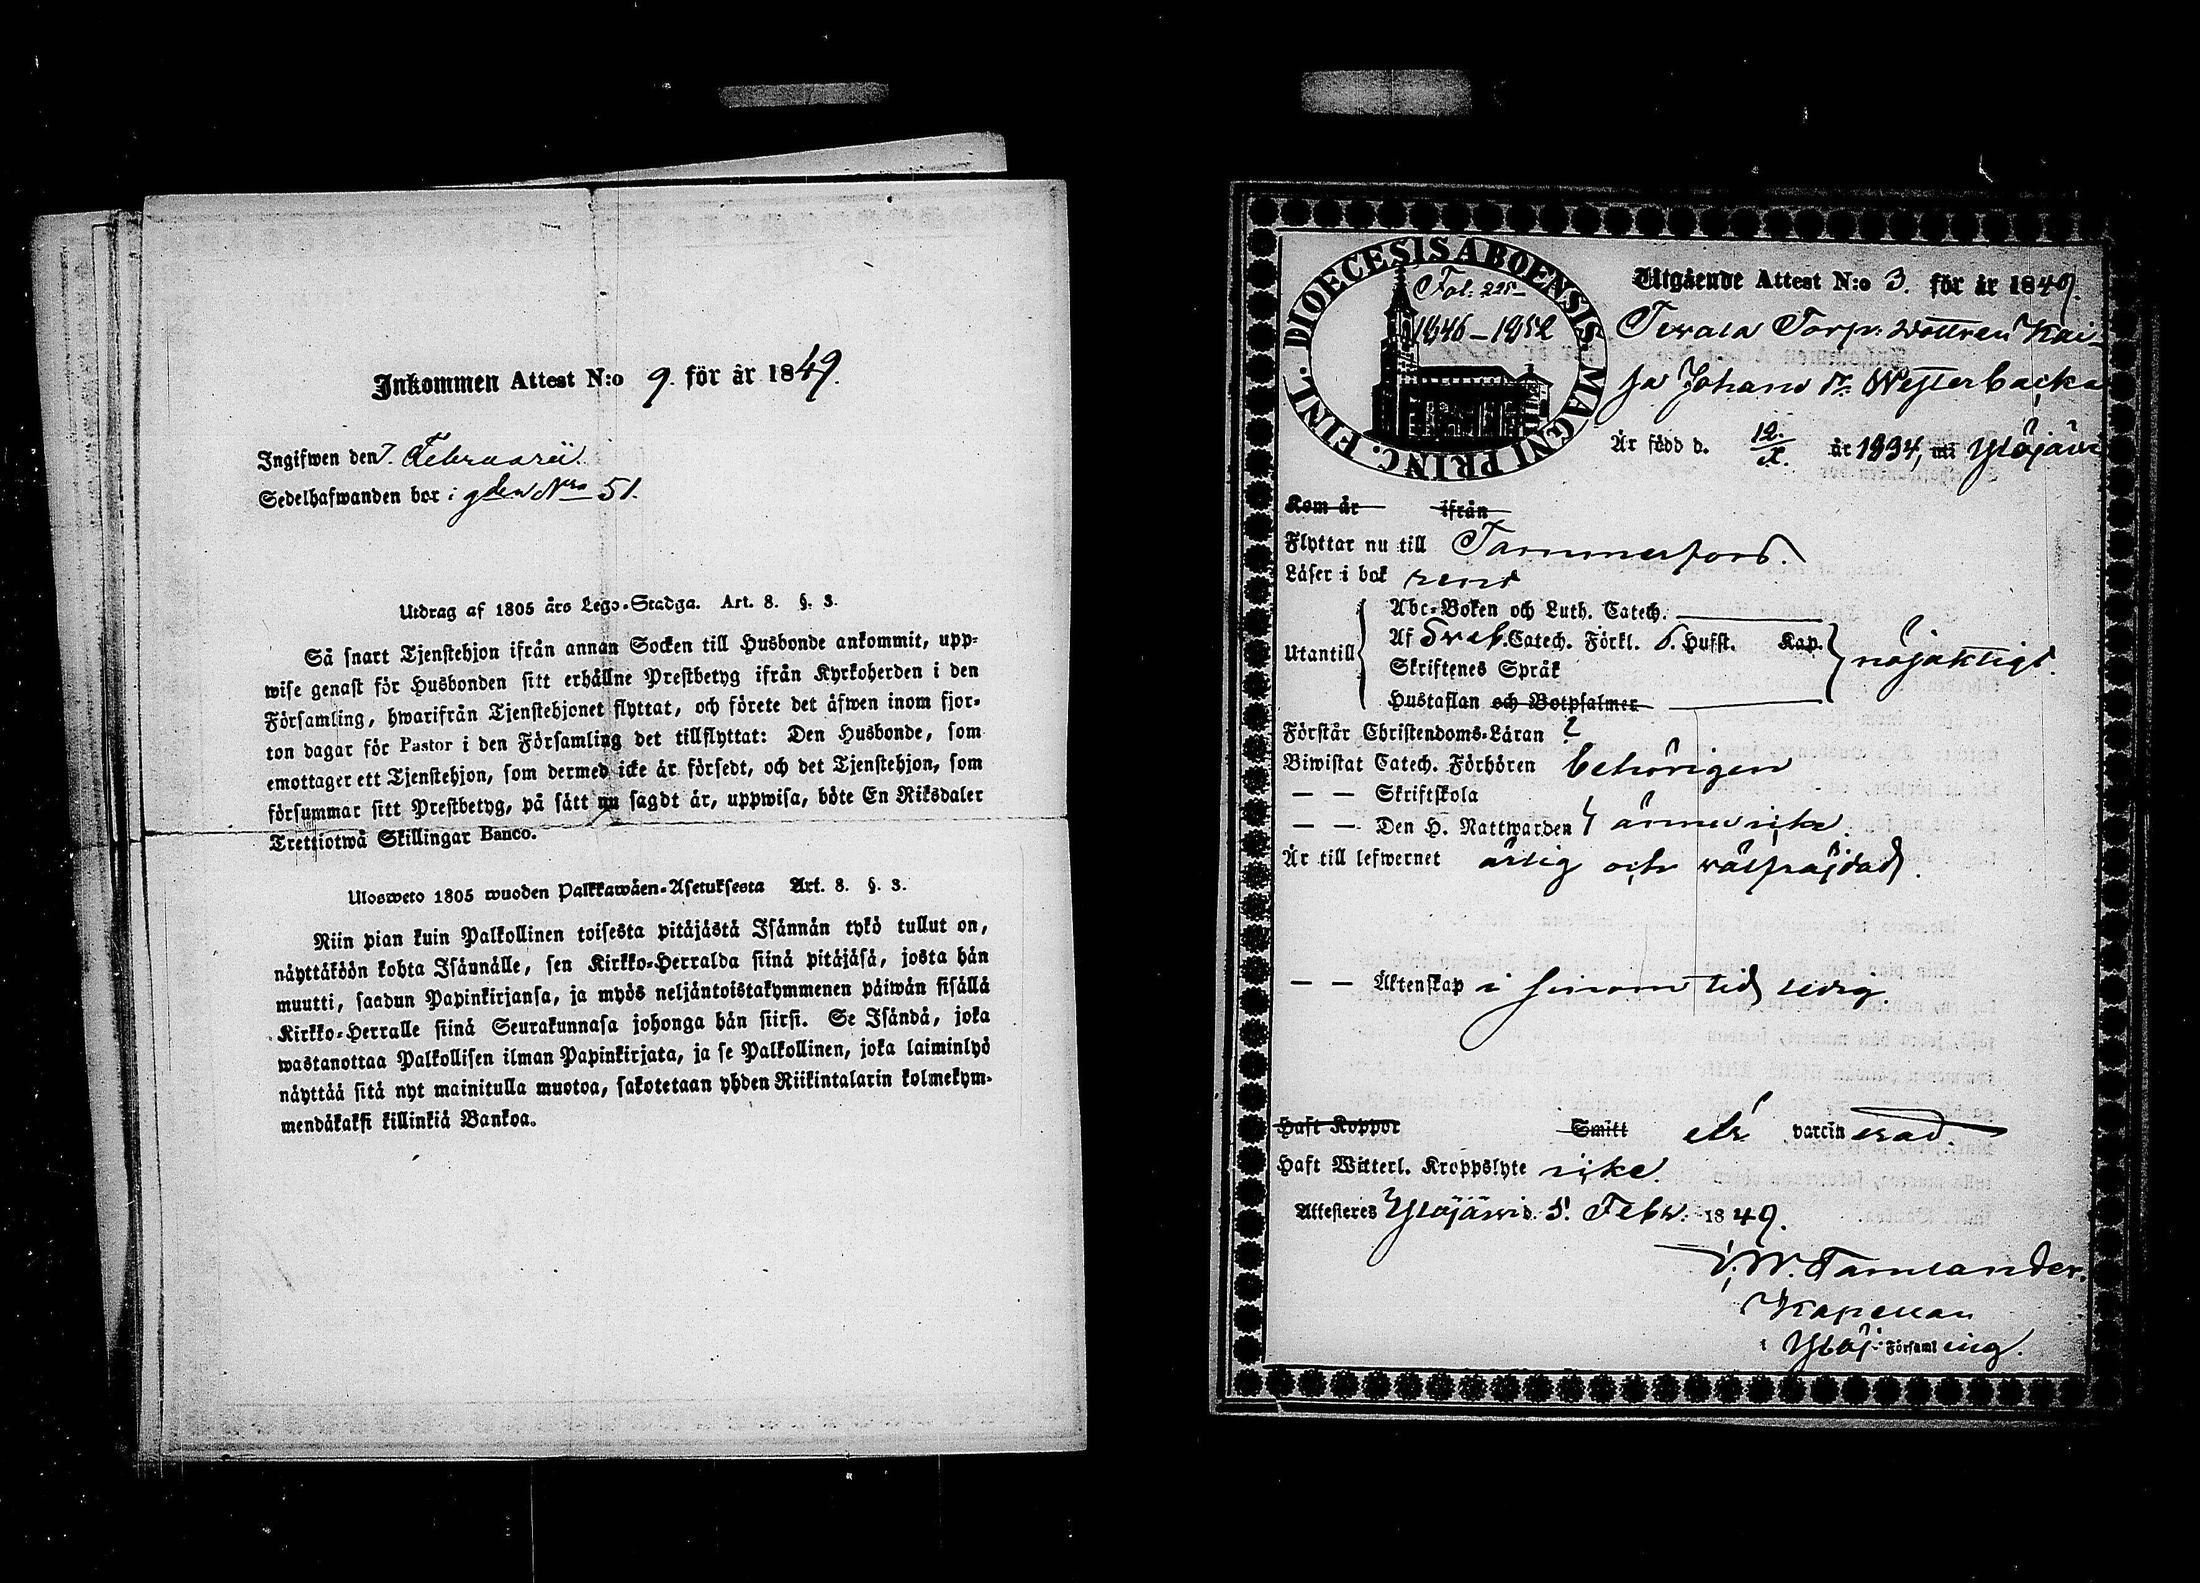 Inkommen Attest N:o 9. för år 1849.
Ingifwen den 7. Februarii.
Sedelhafwanden bor i gden Nro 51.
Utdrag af 1805 års Lego-Stadga. Art. 8. §. 3.
Så snart Tjenstehjon ifrån annan Socken till Husbonde ankommit, upp-
wise genast för Husbonden sitt erhållne Prestbetyg ifrån Kyrkoherden i den
Församling, hwarifrån Tjenstehjonet flyttat, och förete det äfwen inom fjor-
ton dagar för Pastor i den Församling det tillflyttat: Den Husbonde, som
emottager ett Tjenstehjon, som dermed icke är försedt, och det Tjenstehjon, som
försummar sitt Prestbetyg, på sätt nu sagdt är, uppwisa, böte En Riksdaler
Trettiotwå Skillingar Banco.
Ulosweto 1805 wuoden Palkkawäen-Asetuksesta Art. 8. §. 3.
Niin pian kuin Palkollinen toisesta pitäjästä Isännän tykö tullut on,
näyttäköön kohta Isännälle, sen Kirkko-Herralda siinä pitäjäsä, josta hän
muutti, saadun Papinkirjansa, ja myös neljäntoistakymmenen päiwän sisällä
Kirkko-Herralle siinä Seurakunnasa johonga hän siirsi. Se Isändä, joka
wastanottaa Palkollisen ilman Papinkirjata, ja se Palkollinen, joka laiminlyö
näyttää sitä nyt mainitulla muotoa, sakotetaan yhden Riikintalarin kolmekym-
mendäkaksi killinkiä Bankoa.
DIOECESIS ABOENSIS. MAGNI PRINC. FINL.
Fol: 225
1846-1852
Utgående Attest N:o 3. för år 1849.
Torp: dottren Kai-
sa Johans dr Westerbacka
Är född d. 12/X. år 1834, uti Ylöjärvi
Kom år ifrån
Flyttar nu till Tammerfors.
Läser i bok rent
Utantill
Abc-Boken och Luth. Catech.
Af Sveb. Catech. Förkl. 5. Hufst. Kap.
Skriftenes Språk
Hustaflan och Botpsalmer
nöjaktigt.
Förstår Christendoms-Läran
Biwistat Catech. Förhören behörigen
— — Skriftskola
— — Den H. Nattwarden ännu icke.
Är till lefwernet ärlig och välfräjdad.
— — Äktenskap i sinom tid ledig.
Haft Koppor Smitt är vaccinerad.
Haft Witterl. Kroppslyte icke.
Attesteres Ylöjärvi d. 5. Febr. 1849.
W. Tamlander.
Kapellan
i Ylöj: Församling.